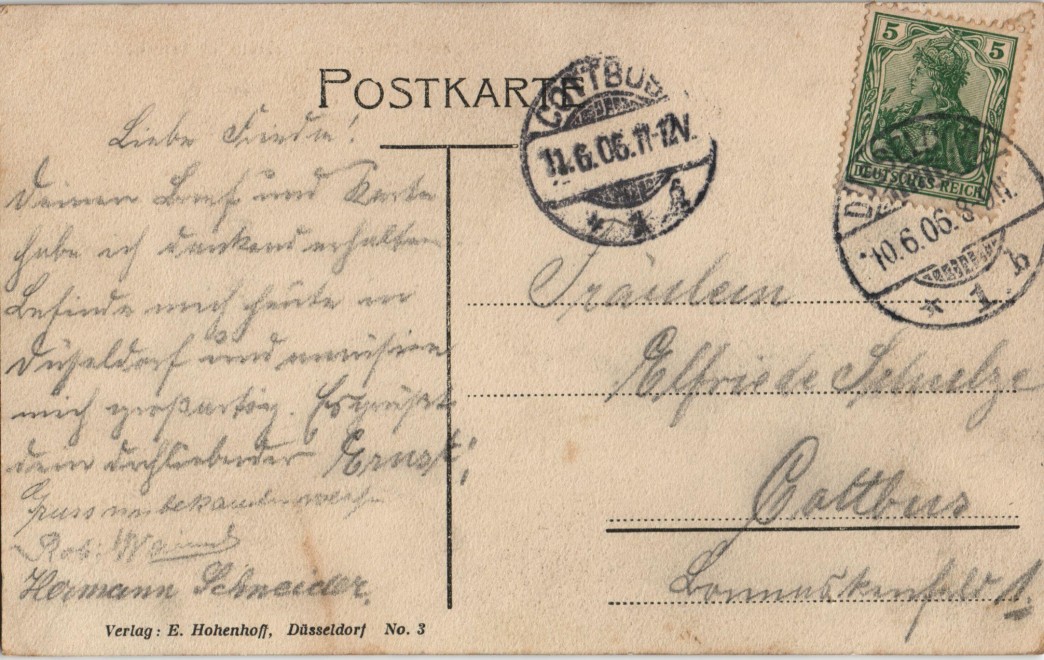 POSTKARTE
Liebe Friede!
Deinen Brief und Karte
habe ich dankend erhalten
Befinde mich heute in
Düsseldorf und amüsiere
mich großartig. Es grüßt
dein dichliebender Ernst
Gruss unbekannterweise
Rob.
Hermann Schneider.
Verlag: E. Hohenhoff, Düsseldorf No. 3
COTTBUS
11.6.06.11-12V.
* 1
5 5
DEUTSCHES REICH
10.6.06.8
* 1 b
Fräulein
Elfriede Schulze
Cottbus